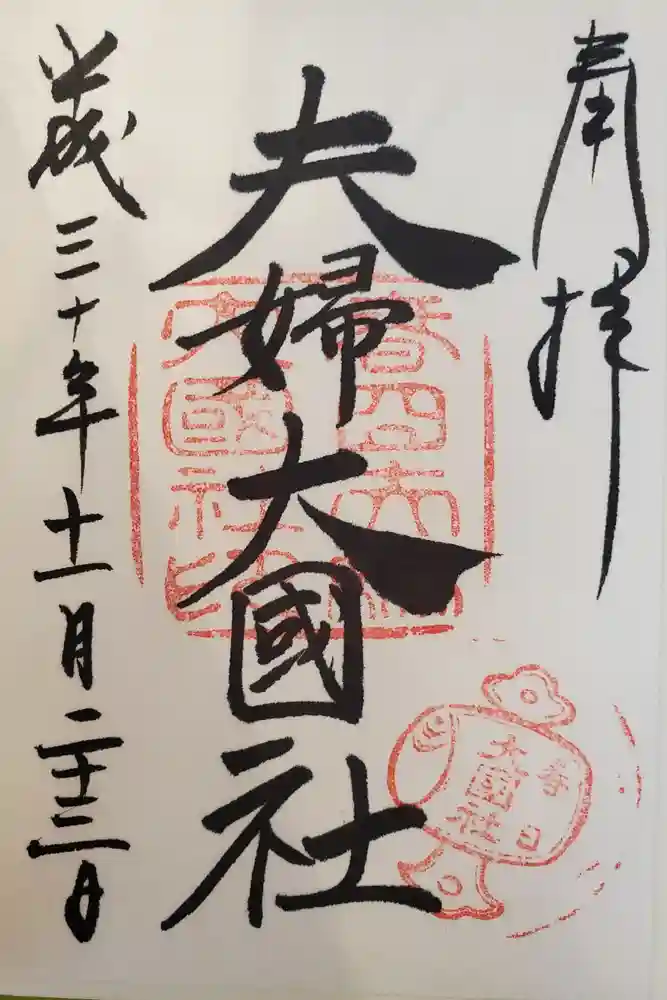 奉拝
夫婦大國社
平成三十年十一月二十三日
大國社印
春日
大国社